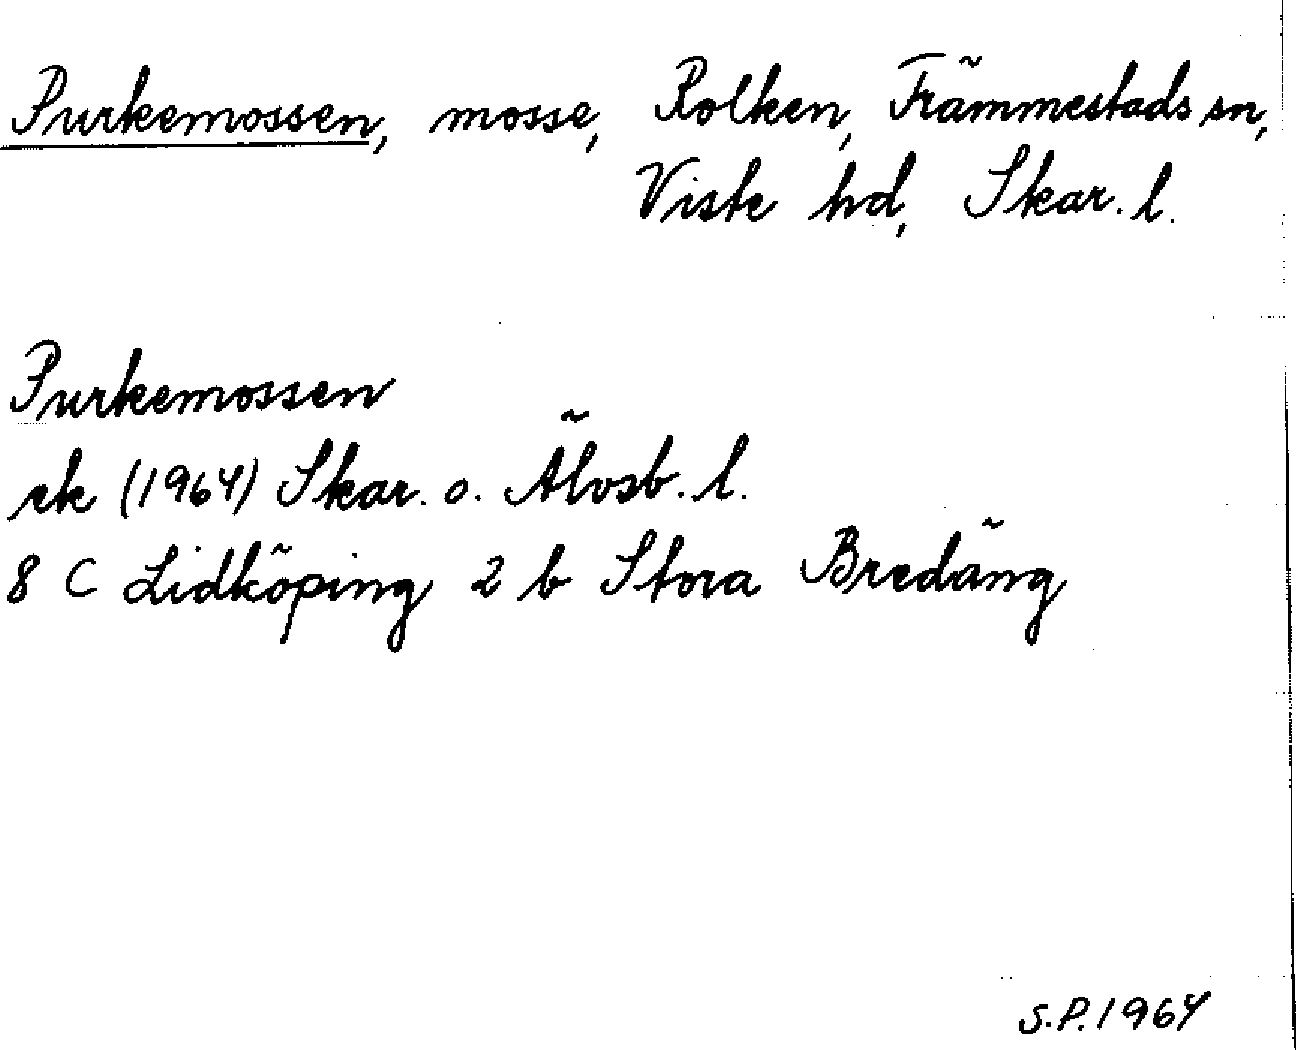 Purkemossen, mosse, Rolken, Främmestads sn,
Viste hd, Skar. l.
Purkemossen
ek (1964) Skar. o. Älvsb. l.
8 C Lidköping 2 b Stora Bredäng
S.P. 1964